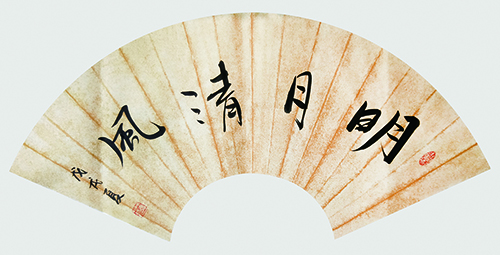 明月清風
戊戌夏